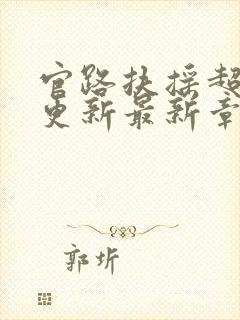 官路扶摇超
更新最新章
郭圻